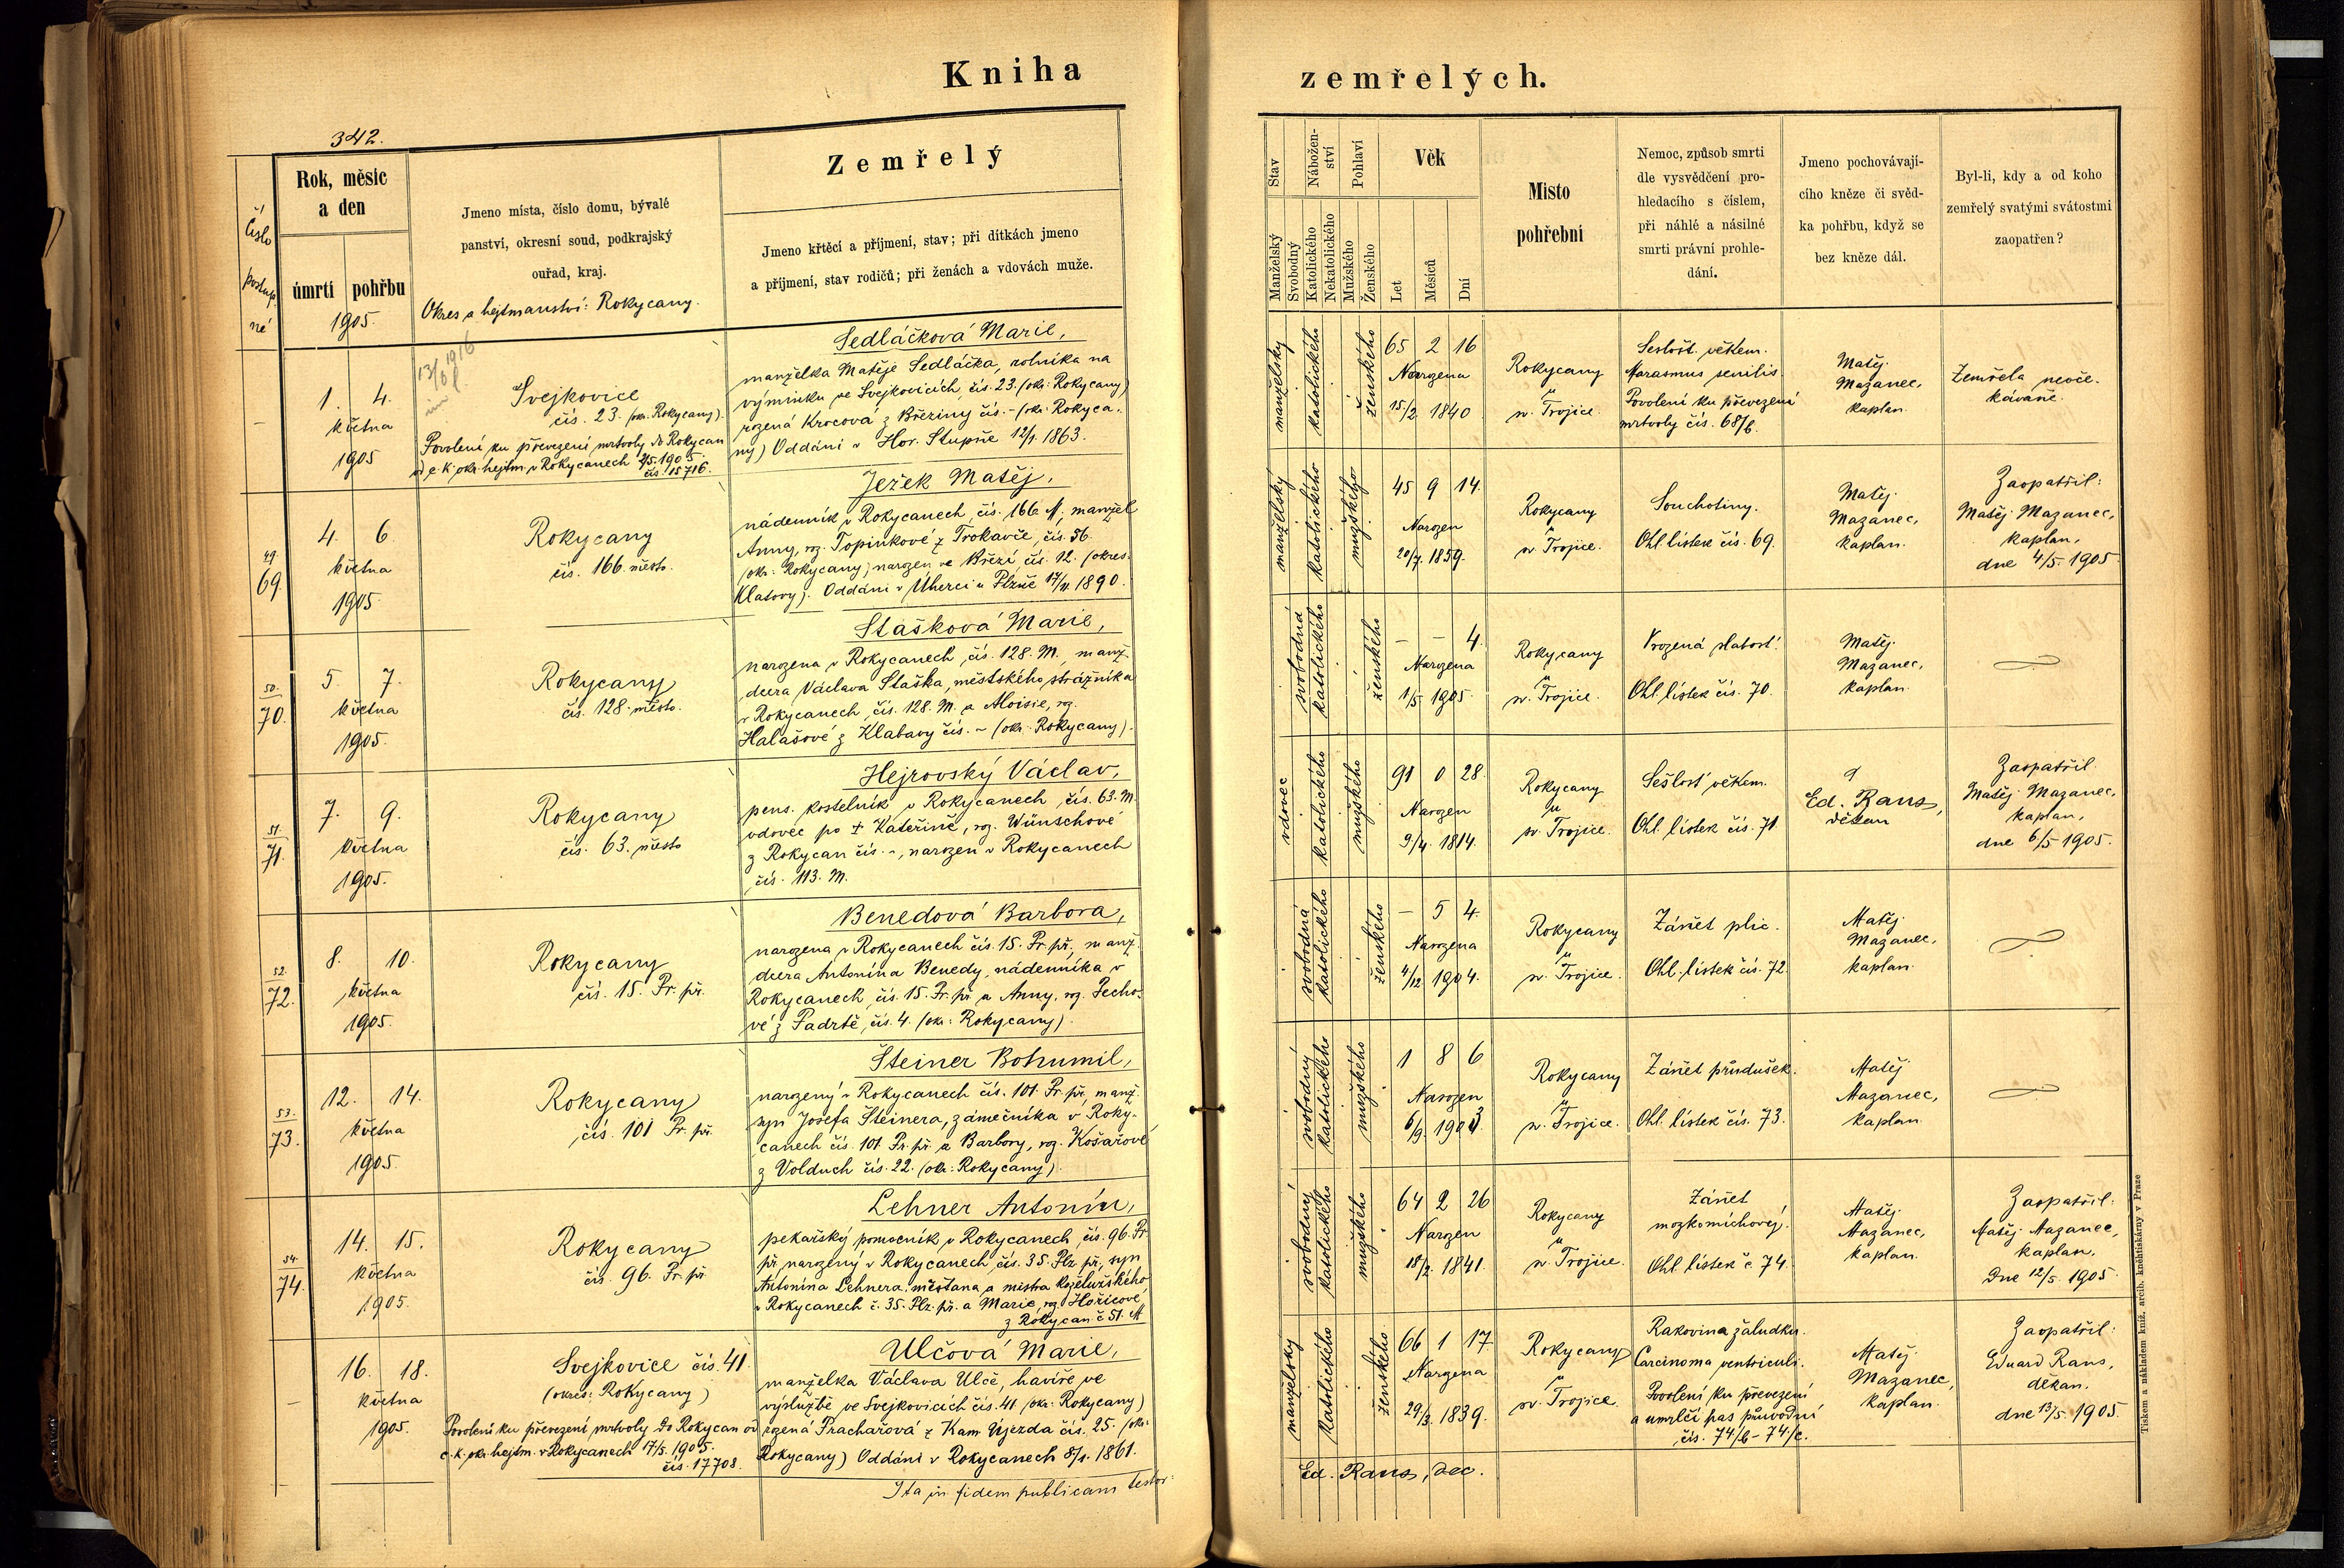 Kniha
zemřelých.
342.
Číslo
postup.
né
Rok, měsíc
a den
úmrtí pohřbu
1905.
Jmeno místa, číslo domu, bývalé
panství, okresní soud, podkrajský
ouřad, kraj.
Okres a hejtmanství: Rokycany.
Zemřelý
Jmeno křtěcí a příjmení, stav; při dítkách jmeno
a příjmení, stav rodičů; při ženách a vdovách muže.
Stav
Manželský
Svobodný
Nábožen-
ství
Katolického
Nekatolického
Pohlaví
Mužského
Ženského
Věk
Let
Měsíců
Dní
Misto
pohřební
Nemoc, způsob smrti
dle vysvědčení pro-
hledacího s číslem,
při náhlé a násilné
smrti právní prohle-
dání.
Jmeno pochovávají-
cího kněze či svěd-
ka pohřbu, když se
bez kněze dál.
Byl-li, kdy a od koho
zemřelý svatými svátostmi
zaopatřen?
13/6 1916
1. 4.
května
1905
Svejkovice
čís. 23. (okr. Rokycany).
Povolení ku převezení mrtvoly do Rokycan
od c. k. okr. hejtm. v Rokycanech 2/5. 1905.
čís. 15716.
Sedláčková Marie,
manželka Matěje Sedláčka, rolníka na
výminku ve Svejkovicích, čís. 23. (okr: Rokycany)
rozená Krocová z Březiny čís. - (okr: Rokyca-
ny) Oddáni v Hor. Stupně 12/1. 1863.
manželský
katolického
ženského
65 2 16
Narozena
15/2. 1840
Rokycany
u
sv. Trojice.
Sešlost věkem.
Marasmus senilis.
Povolení ku převezení
mrtvoly čís. 68/b.
Matěj
Mazanec,
kaplan.
Zemřela neoče-
kávaně.
49.
69.
4. 6.
května
1905.
Rokycany
čís. 166. město.
Ježek Matěj,
nádenník v Rokycanech, čís. 166 M., manžel
Anny, roz. Topinkové z Trokavče, čís. 56.
(okr: Rokycany, narozen ve Březí, čís. 12. (okres:
Klatovy). Oddáni v Úherci u Plzně 17/11 1890.
manželský
katolického
mužského
45 9 14.
Narozen
20/7. 1859.
Rokycany
u
sv. Trojice.
Souchotiny.
Ohl. lístek čís. 69.
Matěj
Mazanec,
kaplan.
Zaopatřil:
Matěj Mazanec,
kaplan,
dne 4/5. 1905.
50.
70.
5. 7.
května
1905.
Rokycany
čís. 128. město.
Stašková Marie,
narozena v Rokycanech, čís. 128. M., manž.
dcera Václava Staška, městského strážníka
v Rokycanech, čís. 128. M. a Aloisie, roz.
Halašové z Klabavy čís. - (okr: Rokycany).
svobodná
katolického
ženského
- - 4.
Narozena
1/5 1905.
Rokycany
u
sv. Trojice.
Vrozená slabost.
Ohl. lístek čís. 70.
Matěj
Mazanec,
kaplan.
51.
71.
7. 9.
května
1905.
Rokycany
čís. 63. město
Hejrovský Václav,
pens. kostelník v Rokycanech, čís. 63. M.
vdovec po † Kateřině, roz. Wünschové
z Rokycan čís. -, narozen v Rokycanech
čís. 113. M.
vdovec
katolického
mužského
91 0 28.
Narozen
9/4. 1814.
Rokycany
u
sv. Trojice.
Sešlost věkem.
Ohl. lístek čís. 71.
Ed. Rans,
děkan
Zaopatřil
Matěj Mazanec,
kaplan,
dne 6/5 1905.
52.
72.
8. 10.
května
1905.
Rokycany
čís. 15. Pr. př.
Benedová Barbora,
narozena v Rokycanech čís. 15. Pr. př., manž.
dcera Antonína Benedy, nádenníka v
Rokycanech, čís. 15. Pr. př. a Anny, roz. Pecho-
vé z Padrtě, čís. 4. (okr: Rokycany).
svobodná
katolického
ženského
- 5 4.
Narozena
4/12 1904.
Rokycany
u
sv. Trojice.
Zánět plic.
Ohl. lístek čís. 72.
Matěj
Mazanec,
kaplan.
53.
73.
12. 14.
května
1905.
Rokycany
čís. 101 Pr. př.
Šteiner Bohumil,
narozený v Rokycanech čís. 101. Pr. př., manž.
syn Josefa Šteinera, zámečníka v Roky-
canech čís. 101. Pr. př. a Barbory, roz. Košařové
z Volduch čís. 22. (okr: Rokycany).
svobodný
katolického
mužského
1 8 6
Narozen
6/9. 1903.
Rokycany
u
sv. Trojice.
Zánět průdušek.
Ohl. lístek čís. 73.
Matěj
Mazanec,
kaplan.
54.
74.
14. 15.
května
1905.
Rokycany
čís. 96. Pr. př.
Lehner Antonín,
pekařský pomocník v Rokycanech, čís. 96. Pr.
př., narozený v Rokycanech, čís. 35. Plz. př., syn
Antonína Lehnera, měšťana a mistra koželužského
v Rokycanech č. 35. Plz. př. a Marie, roz. Hořicové,
z Rokycan č 51. M
svobodný
katolického
mužského
64 2 26
Narozen
18/2. 1841.
Rokycany
u
sv. Trojice.
Zánět
mozkomíchový.
Ohl. lístek č. 74.
Matěj
Mazanec,
kaplan.
Zaopatřil:
Matěj Mazanec,
kaplan,
Dne 12/5. 1905.
16. 18.
května
1905.
Svejkovice čís. 41.
(okres: Rokycany)
Povolení ku převezení mrtvoly do Rokycan od
c. k. okr. hejtm. v Rokycanech 17/5. 1905.
čís. 17708.
Ulčová Marie,
manželka Václava Ulče, havíře ve
výslužbě ve Svejkovicích čís. 41 (okr: Rokycany)
rozená Prachařová z Kam. Újezda čís. 25. (okr:
Rokycany) Oddáni v Rokycanech 8/1. 1861.
manželský
katolického
ženského
66 1 17.
Narozena
29/3. 1839.
Rokycany
u
sv. Trojice.
Rakovina žaludku.
Carcinoma ventriculi.
Povolení ku převezení
a umrlčí pas průvodní
čís. 74/b - 74/c.
Matěj
Mazanec,
kaplan.
Zaopatřil:
Eduard Rans,
děkan,
dne 13/5. 1905.
Ita in fidem publicam testor:
Ed. Rans, dec.
Tiskem a nákladem kníž. arcib. knihtiskárny v Praze